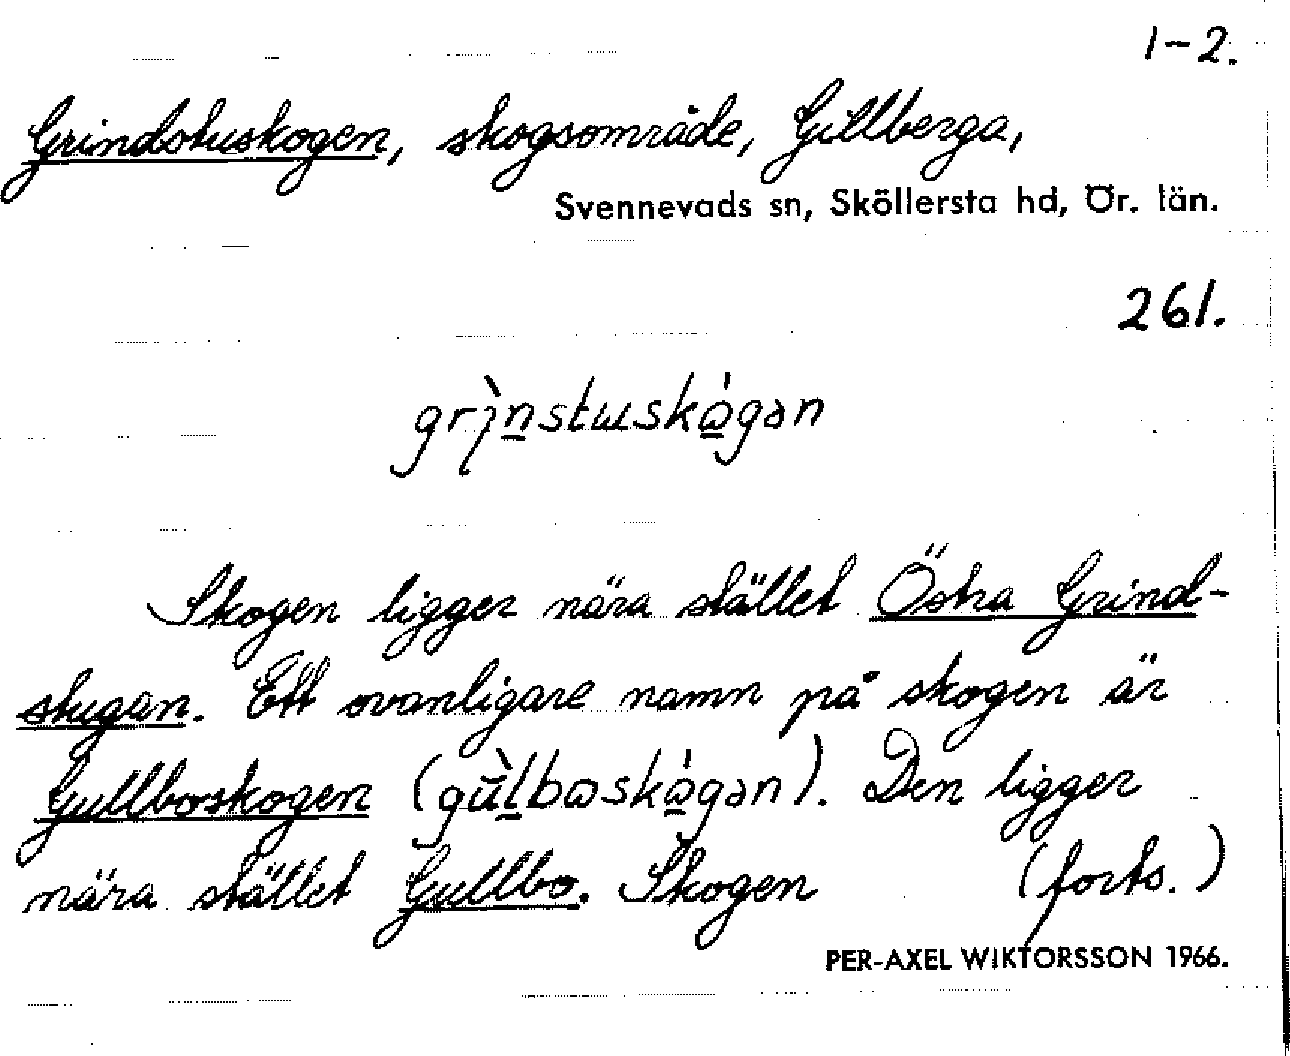 1-2.
Grindstuskogen, skogsområde, Gillberga,
Svennevads sn, Sköllersta hd, Ör. län.
261.
Skogen ligger nära stället Östra Grind-
stugan. Ett ovanligare namn på skogen är
Gullboskogen ( ). Den ligger
nära stället Gullbo. Skogen (forts.)
PER-AXEL WIKTORSSON 1966.